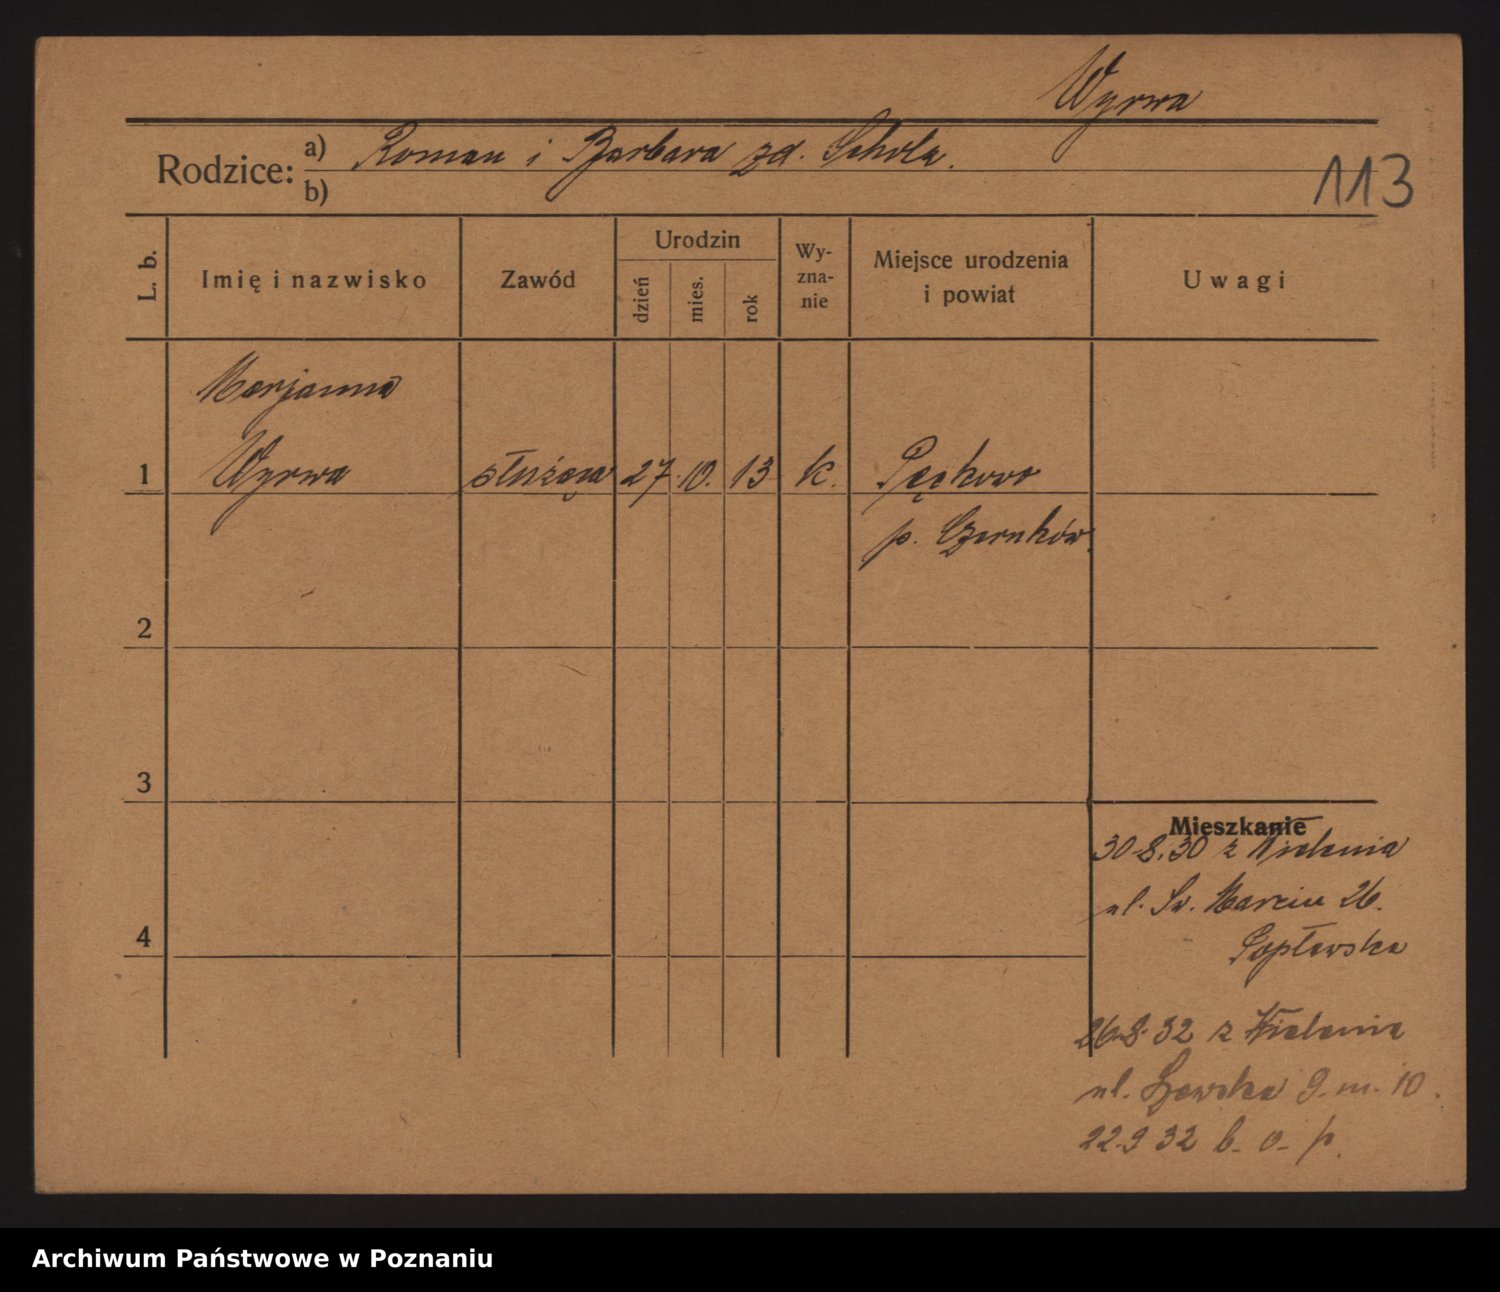 Wyrwa
Rodzice: a) Roman i Barbara zd. Schola.
b)
113
L. b.
Imię i nazwisko
Zawód
Urodzin
dzień
mies.
rok
Wy-
zna-
nie
Miejsce urodzenia
i powiat
Uwagi
Marjanna
1 Wyrwa służąca 27. 10. 13 k. Pęckowo
p. Czarnków.
2
3
Mieszkanie
30.8.30 z Wielenia
ul. Św. Marcin 26.
Popławska
4
26.8.32 z Wielenia
ul. Szewska 9. m. 10.
22.9 32 b. o. p.
Archiwum Państwowe w Poznaniu